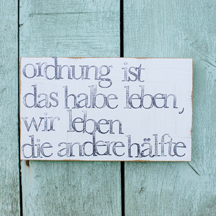 ordnung ist
das halbe leben,
wir leben
die andere hälfte